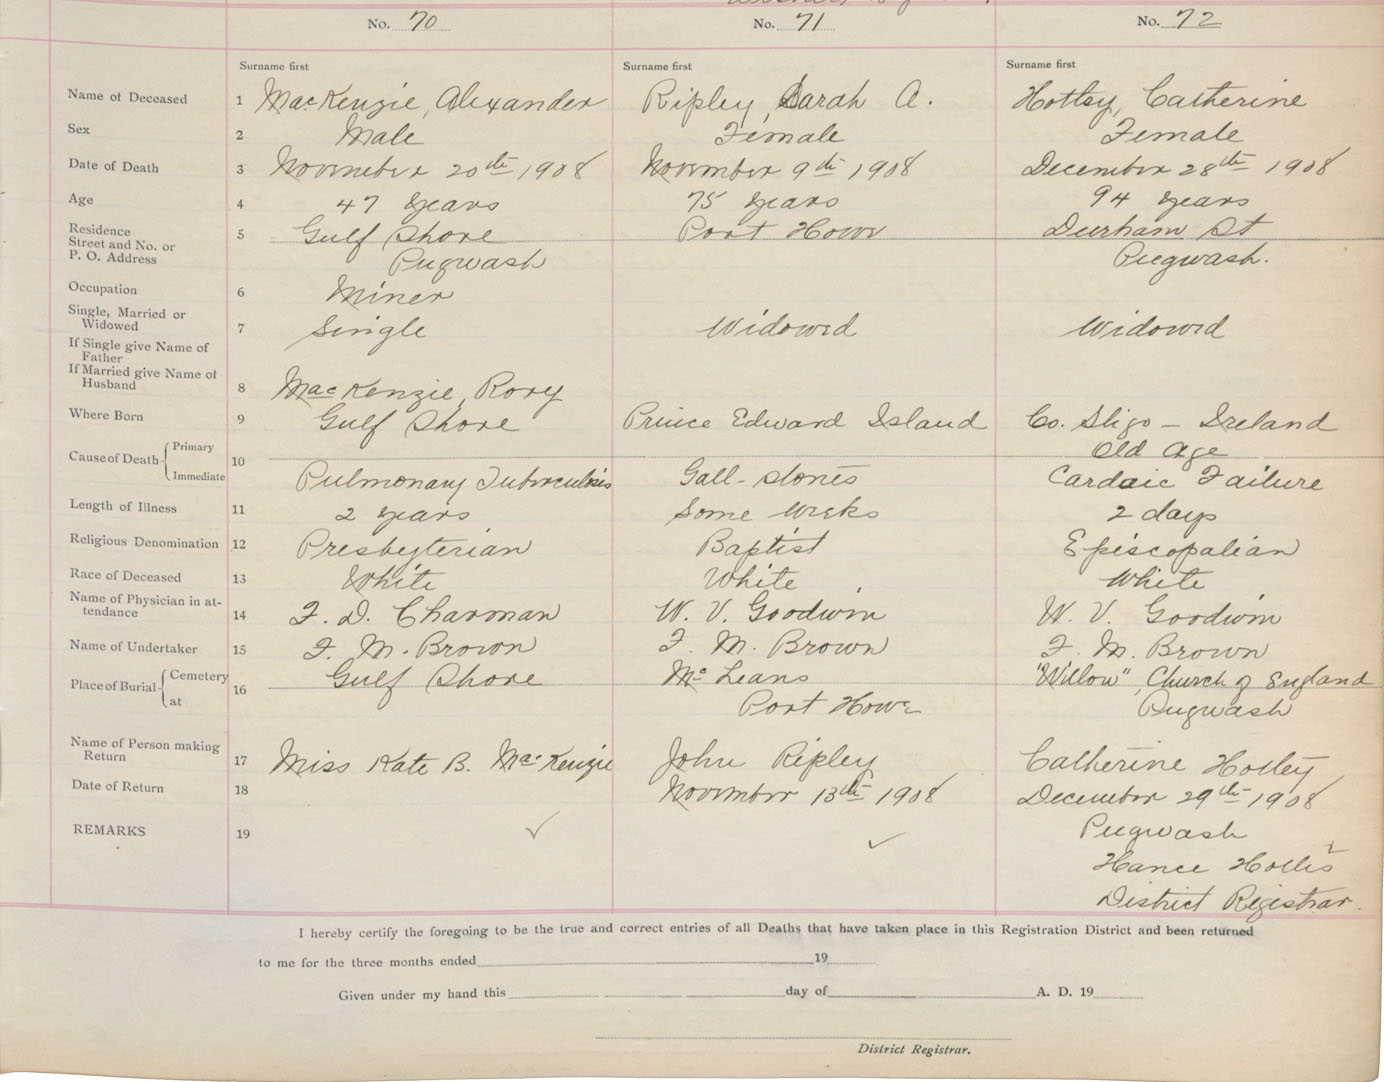 No. 70 No. 71 No. 72
Surname first Surname first Surname first
Name of Deceased 1 MacKenzie, Alexander Ripley, Sarah A. Hottsy, Catherine
Sex 2 Male Female Female
Date of Death 3 November 20th 1908 November 9th 1908 December 28th 1908
Age 4 47 years 75 years 94 years
Residence
Street and No. or 5 Gulf Shore Port Howe Durham St
P. O. Address Pugwash Pugwash.
Occupation 6 Miner
Single, Married or
Widowed 7 Single Widowed Widowed
If Single give Name of
Father
If Married give Name of
Husband 8 MacKenzie, Rory
Where Born 9 Gulf Shore Prince Edward Island Co. Sligo - Ireland
Cause of Death Primary 10 Old Age
Immediate Pulmonary Tuberculosis Gall-stones Cardaic Failure
Length of Illness 11 2 years Some weeks 2 days
Religious Denomination 12 Presbyterian Baptist Episcopalian
Race of Deceased 13 White White White
Name of Physician in at-
tendance 14 F. D. Charman W. V. Goodwin W. V. Goodwin
Name of Undertaker 15 F. M. Brown F. M. Brown F. M. Brown
Place of Burial Cemetery 16 Gulf Shore McLeans "Willow", Church of England
at Port Howe Pugwash
Name of Person making
Return 17 Miss Kate B. MacKenzie John Ripley Catherine Hotley
Date of Return 18 November 13th 1908 December 29th 1908
REMARKS 19 Pugwash
Hance Hollis
District Registrar.
I hereby certify the foregoing to be the true and correct entries of all Deaths that have taken place in this Registration District and been returned
to me for the three months ended 19
Given under my hand this day of A. D. 19
District Registrar.